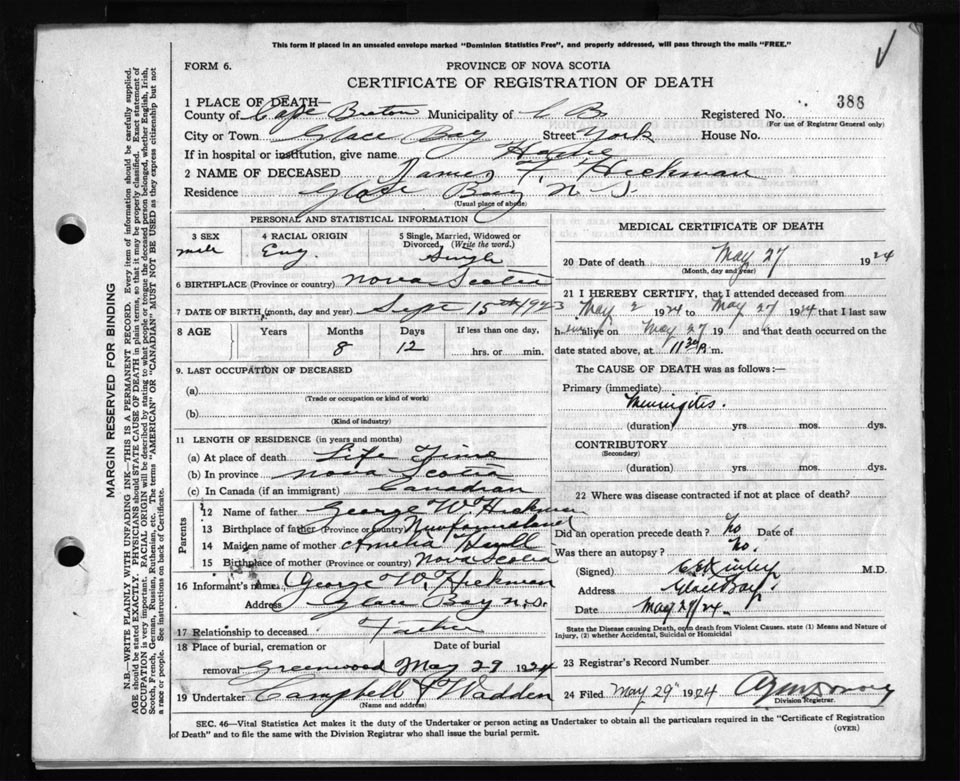 This form if placed in an unsealed envelope marked "Dominion Statistics Free", and properly addressed, will pass through the mails "FREE."
FORM 6.
PROVINCE OF NOVA SCOTIA
CERTIFICATE OF REGISTRATION OF DEATH
388
1 PLACE OF DEATH—
County of Cape Breton Municipality of C B. Registered No.
(For use of Registrar General only)
City or Town Glace Bay Street York House No.
If in hospital or institution, give name Home
2 NAME OF DECEASED James F. Hickman
Residence Glace Bay N. S.
(Usual place of abode)
PERSONAL AND STATISTICAL INFORMATION
3 SEX male
4 RACIAL ORIGIN Eng.
5 Single, Married, Widowed or Divorced (Write the word.) Single
6 BIRTHPLACE (Province or country) Nova Scotia
7 DATE OF BIRTH (month, day and year) Sept 15th 1923
8 AGE Years Months Days If less than one day,
8 12 hrs. or min.
9. LAST OCCUPATION OF DECEASED
(a)
(Trade or occupation or kind of work)
(b)
(Kind of industry)
11 LENGTH OF RESIDENCE (in years and months)
(a) At place of death Life Time
(b) In province Nova Scotia
(c) In Canada (if an immigrant) Canadian
Parents
12 Name of father George W. Hickman
13 Birthplace of father (Province or country) Newfoundland
14 Maiden name of mother Amelia
15 Birthplace of mother (Province or country) Nova Scotia
16 Informant's name George W. Hickman
Address Glace Bay N.S.
17 Relationship to deceased Father
18 Place of burial, cremation or Date of burial
removal Greenwood May 29 1924
19 Undertaker Campbell & Wadden
(Name and address)
MEDICAL CERTIFICATE OF DEATH
20 Date of death May 27 1924
(Month, day and year)
21 I HEREBY CERTIFY, that I attended deceased from
May 2 1924 to May 27 1924 that I last saw
h alive on May 27 19 and that death occurred on
date stated above, at 11 30 P. m.
The CAUSE OF DEATH was as follows:—
Primary (immediate)
Meningites.
(duration) yrs. mos. dys.
CONTRIBUTORY
(Secondary)
(duration) yrs. mos. dys.
22 Where was disease contracted if not at place of death?
Did an operation precede death? No Date of
Was there an autopsy? No.
(Signed) M.D.
Address Glace Bay.
Date May 29/24.
State the Disease causing Death, or in death from Violent Causes. state (1) Means and Nature of
Injury, (2) whether Accidental, Suicidal or Homicidal
23 Registrar's Record Number
24 Filed May 29th 1924
Division Registrar.
SEC. 46—Vital Statistics Act makes it the duty of the Undertaker or person acting as Undertaker to obtain all the particulars required in the "Certificate of Registration
of Death" and to file the same with the Division Registrar who shall issue the burial permit.
(OVER)
MARGIN RESERVED FOR BINDING
N.B.—WRITE PLAINLY WITH UNFADING INK—THIS IS A PERMANENT RECORD. Every item of information should be carefully supplied.
AGE should be stated EXACTLY. PHYSICIANS should STATE CAUSE OF DEATH in plain terms, so that it may be properly classified. Exact statement of
OCCUPATION is very important. RACIAL ORIGIN will be described by stating to what people or tongue the deceased person belonged, whether English, Irish,
Scotch, French, German, Russian, Ruthenian, etc. The terms "AMERICAN" OR "CANADIAN" MUST NOT BE USED as they express citizenship but not
a race or people. See instructions on back of Certificate.